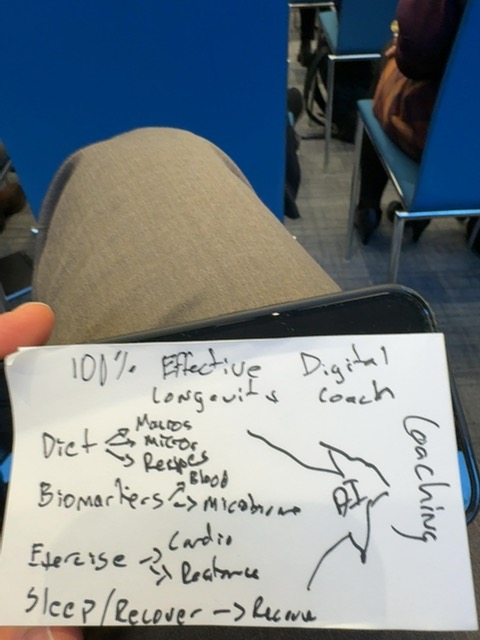 100% Effective Digital
Longevity Coach
Diet → Macros
→ Micros
→ Recipes
Biomarkers → Blood
→ Microbiome
Exercise → Cardio
→
Sleep/Recover →
AI
Coaching